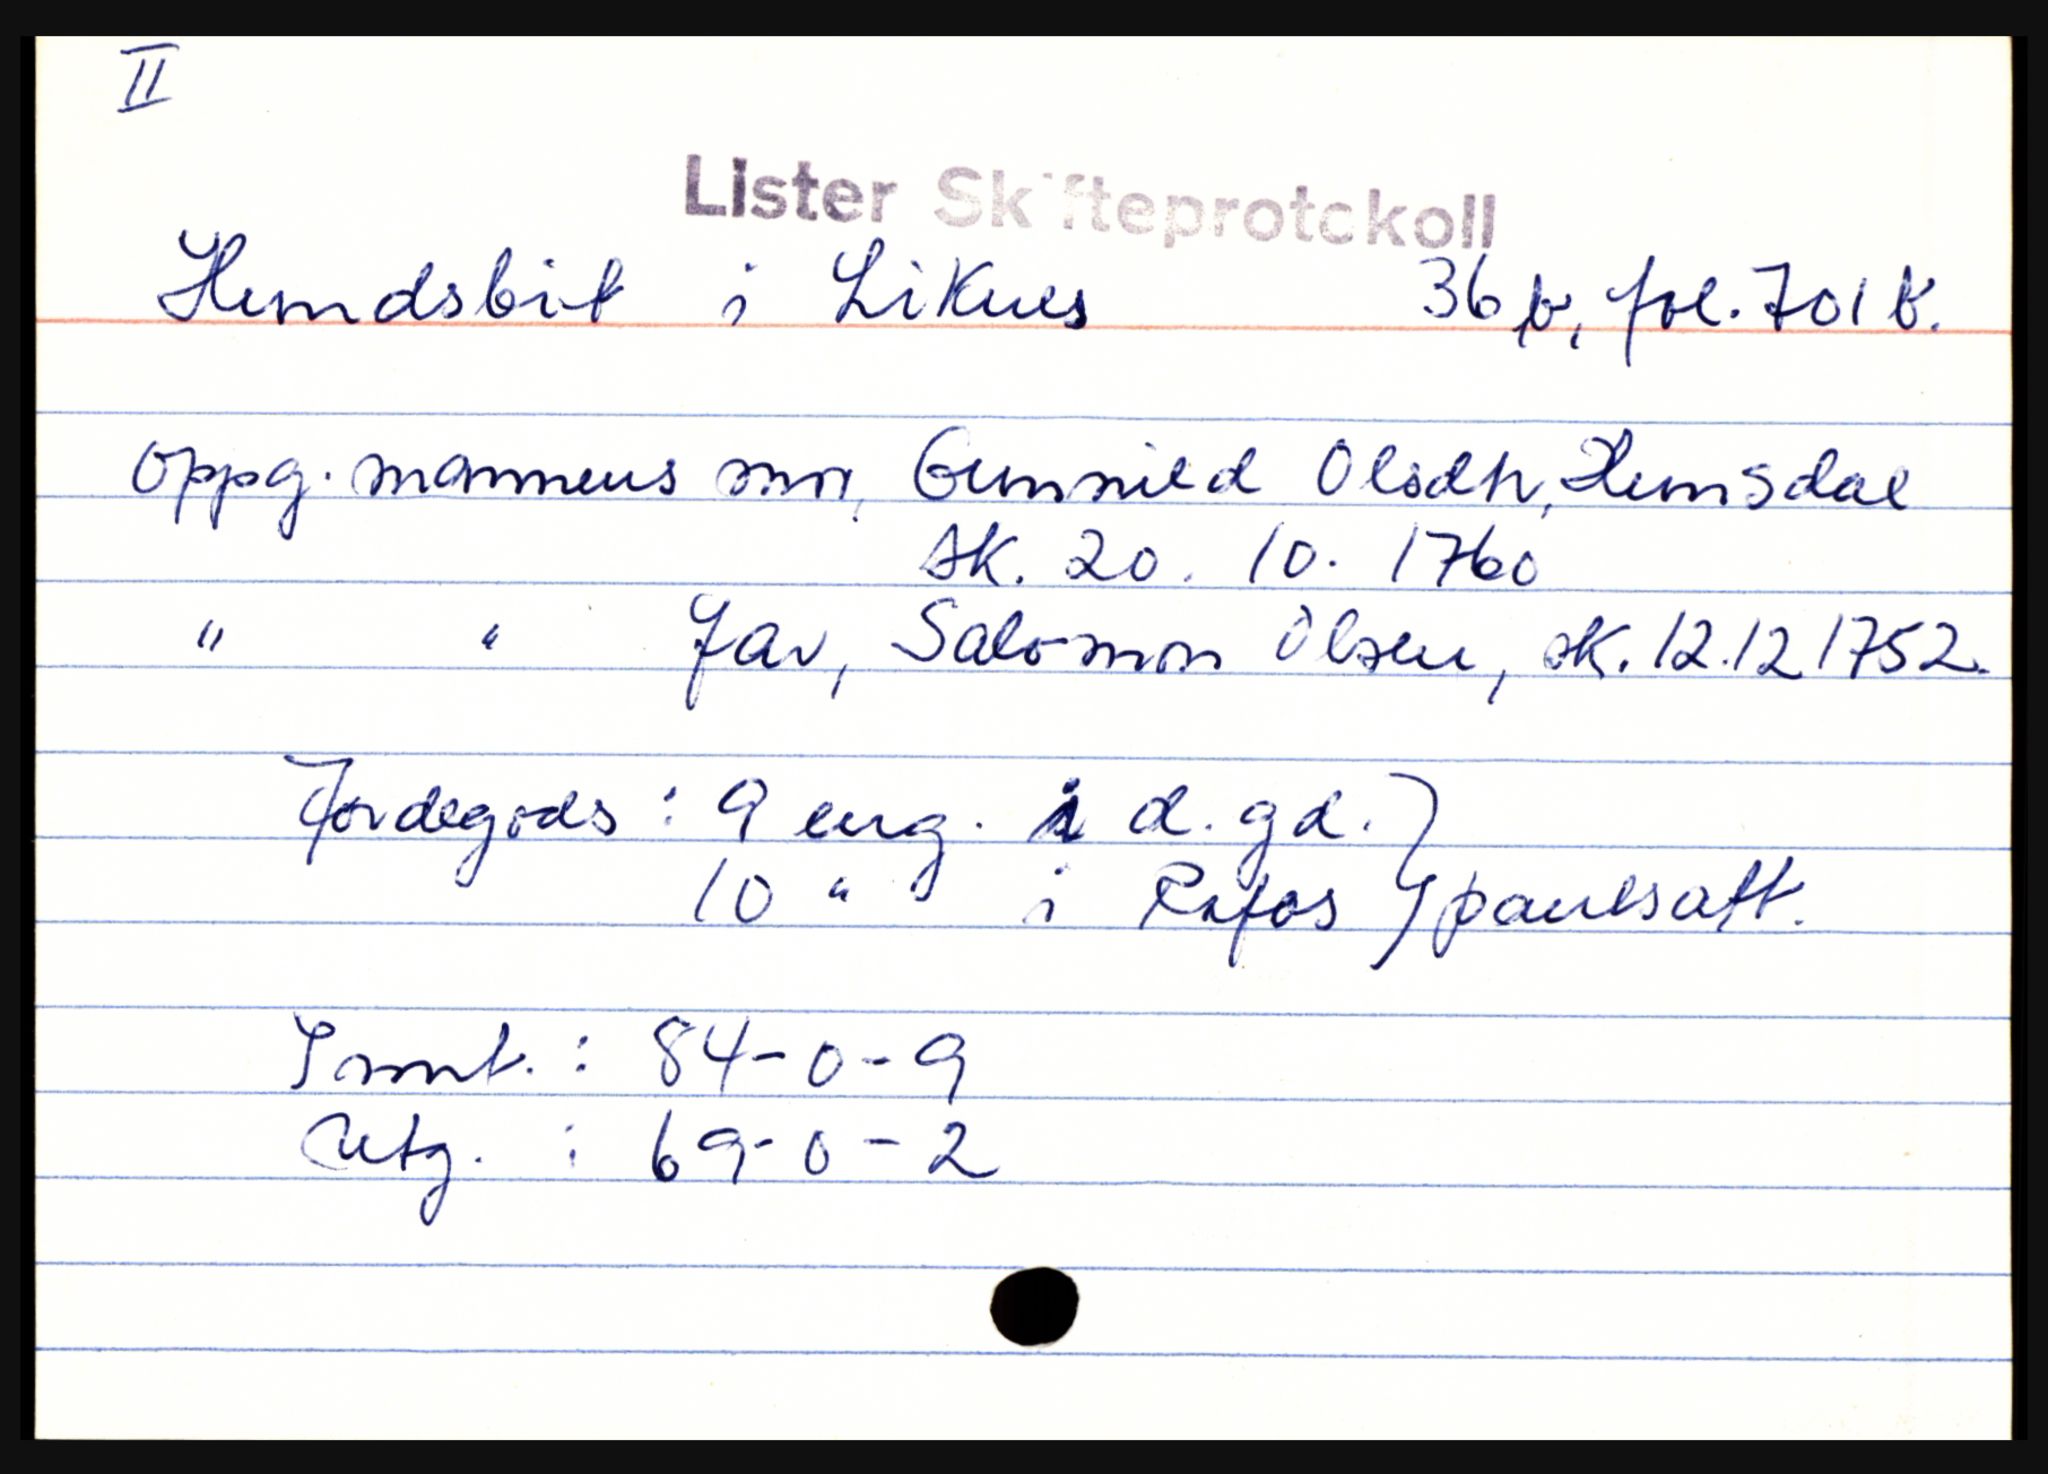 II
Lister Skifteprotokoll
Hundsbit i Liknes 36 b, fol. 701 b.
Oppg. mannens mor, Gunnild Olsdtr, Humsdal
sk. 20. 10. 1760
" " far, Salomon Olsen, sk. 12.12 1752.
Jordegods: 9 eng. i d. gd.)
10 " i Rafos ) pantsatt.
Innt. : 84-0-9
Utg. : 69-0-2